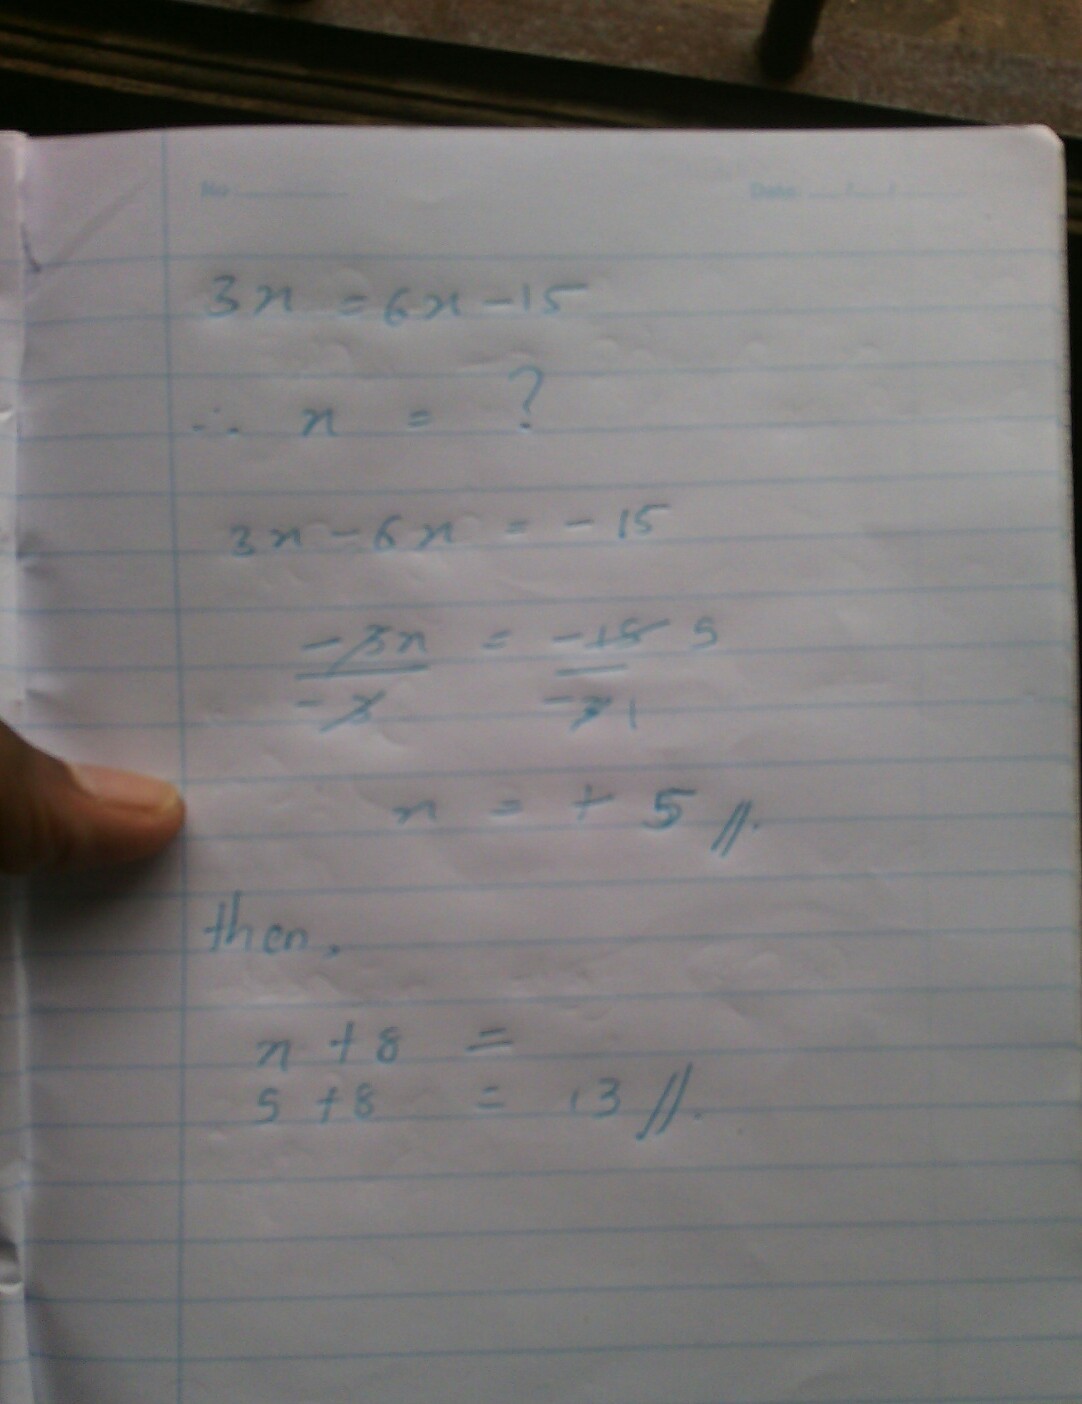 No
Date: / /
3x = 6x - 15
∴ x = ?
3x - 6x = - 15
-3x = -15 5
-3 -3 1
x = + 5 //.
then,
x + 8 =
5 + 8 = 13 //.